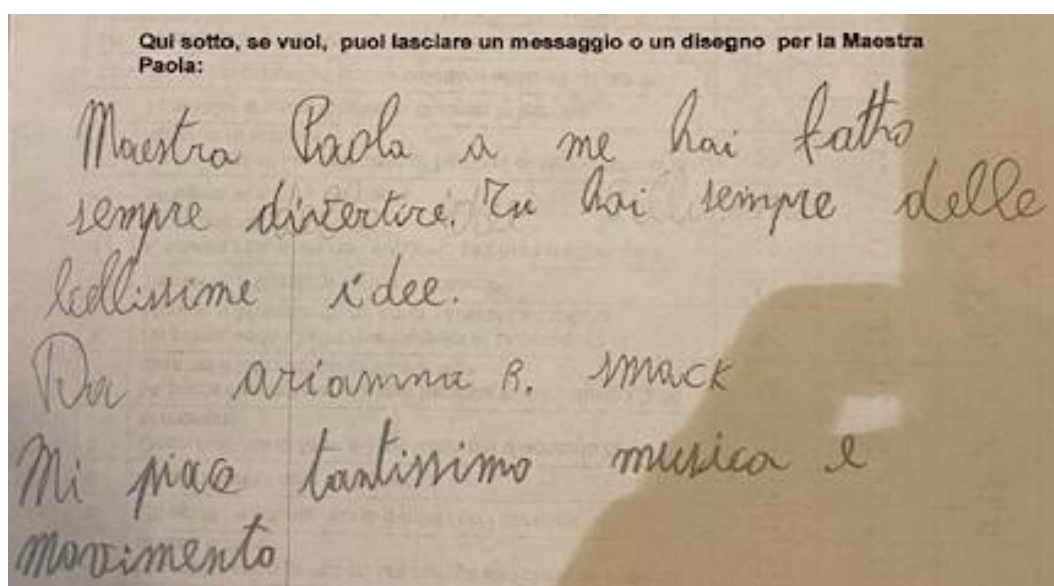 Qui sotto, se vuoi, puoi lasciare un messaggio o un disegno per la Maestra
Paola:
Maestra Paola a me hai fatto
sempre divertire. Tu hai sempre delle
bellissime idee.
Da arianna R. smack
Mi piace tantissimo musica e
movimento